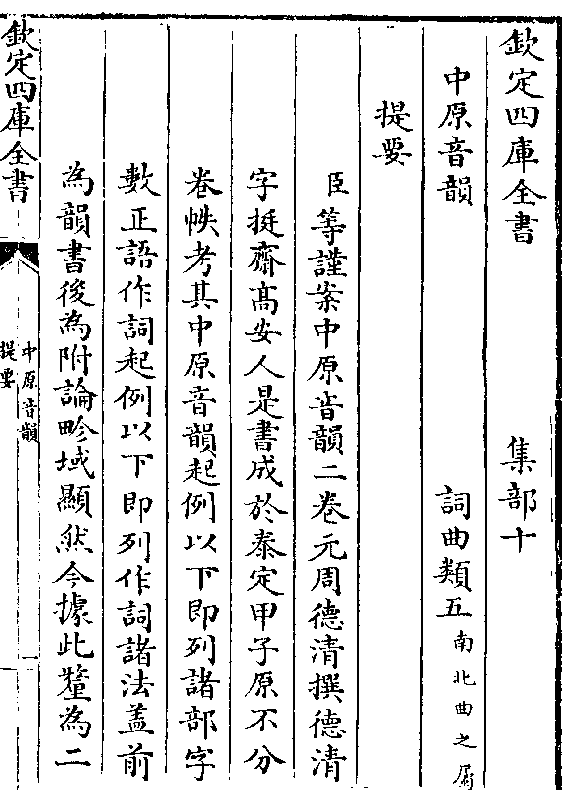 欽定四庫全書 集部十
中原音韻 詞曲類五南北曲之屬
提要
臣等謹案中原音韻二卷元周德清撰德清
字挺齋髙安人是書成於泰定甲子原不分
卷帙考其中原音韻起例以下即列諸部字
數正語作詞起例以下即列作詞諸法盖前
為韻書後為附論畛域顯然今據此釐為二
欽定四庫全書
中原音韻
提要
一